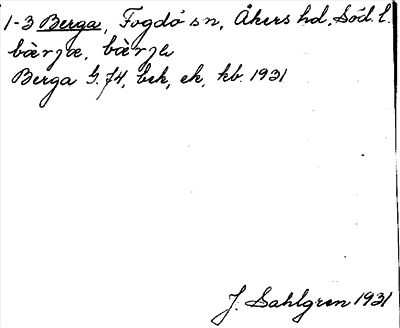 1-3 Berga, Fogdö sn, Åkers hd. Söd. l.
bàrjɑ, bàrjɑ
Berga G. J4, bek, ek, kb. 1931
J. Sahlgren 1931